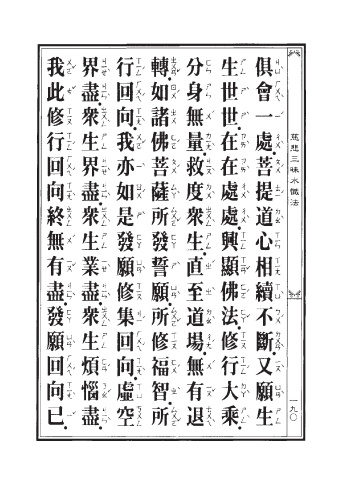 慈悲三昧水懺法
一九〇
俱會一處。菩提道心相續不斷。又願生
生世世。在在處處。興顯佛法。修行大乘。
分身無量。救度眾生。直至道場。無有退
轉。如諸佛菩薩。所發誓願。所修福智。所
行回向。我亦如是發願。修集回向。虛空
界盡。眾生界盡。眾生業盡。眾生煩惱盡。
我此修行回向。終無有盡。發願回向已。